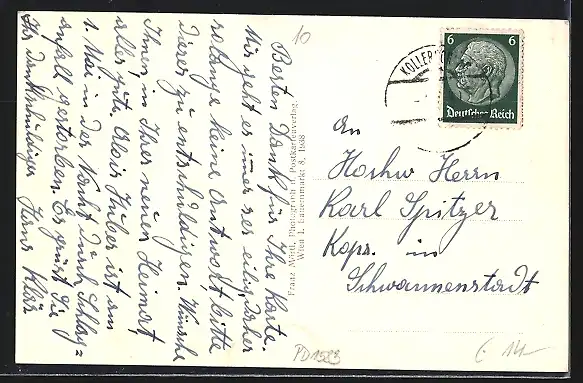 Besten Dank für Ihre Karte.
Mir geht es immer so eilig, daher
solange keine Antwort, bitte
dieses zu entschuldigen. Wünsche
Ihnen in Ihrer neuen Heimat
alles gute. Alois Huber ist am
1. Mai in der Nacht durch Schlag=
anfall gestorben. Es grüst Sie
Ihr Dankschuldiger Hans
Franz Mörtl, Photograph u. Postkartenverlag,
Wien I, Bauernmarkt 8. 1938
10
KOLLER
6 6
Deutsches Reich
An
Hochw Herrn
Karl Spitzer
Kops. in
Schwannenstadt
PD1523
€ 14-